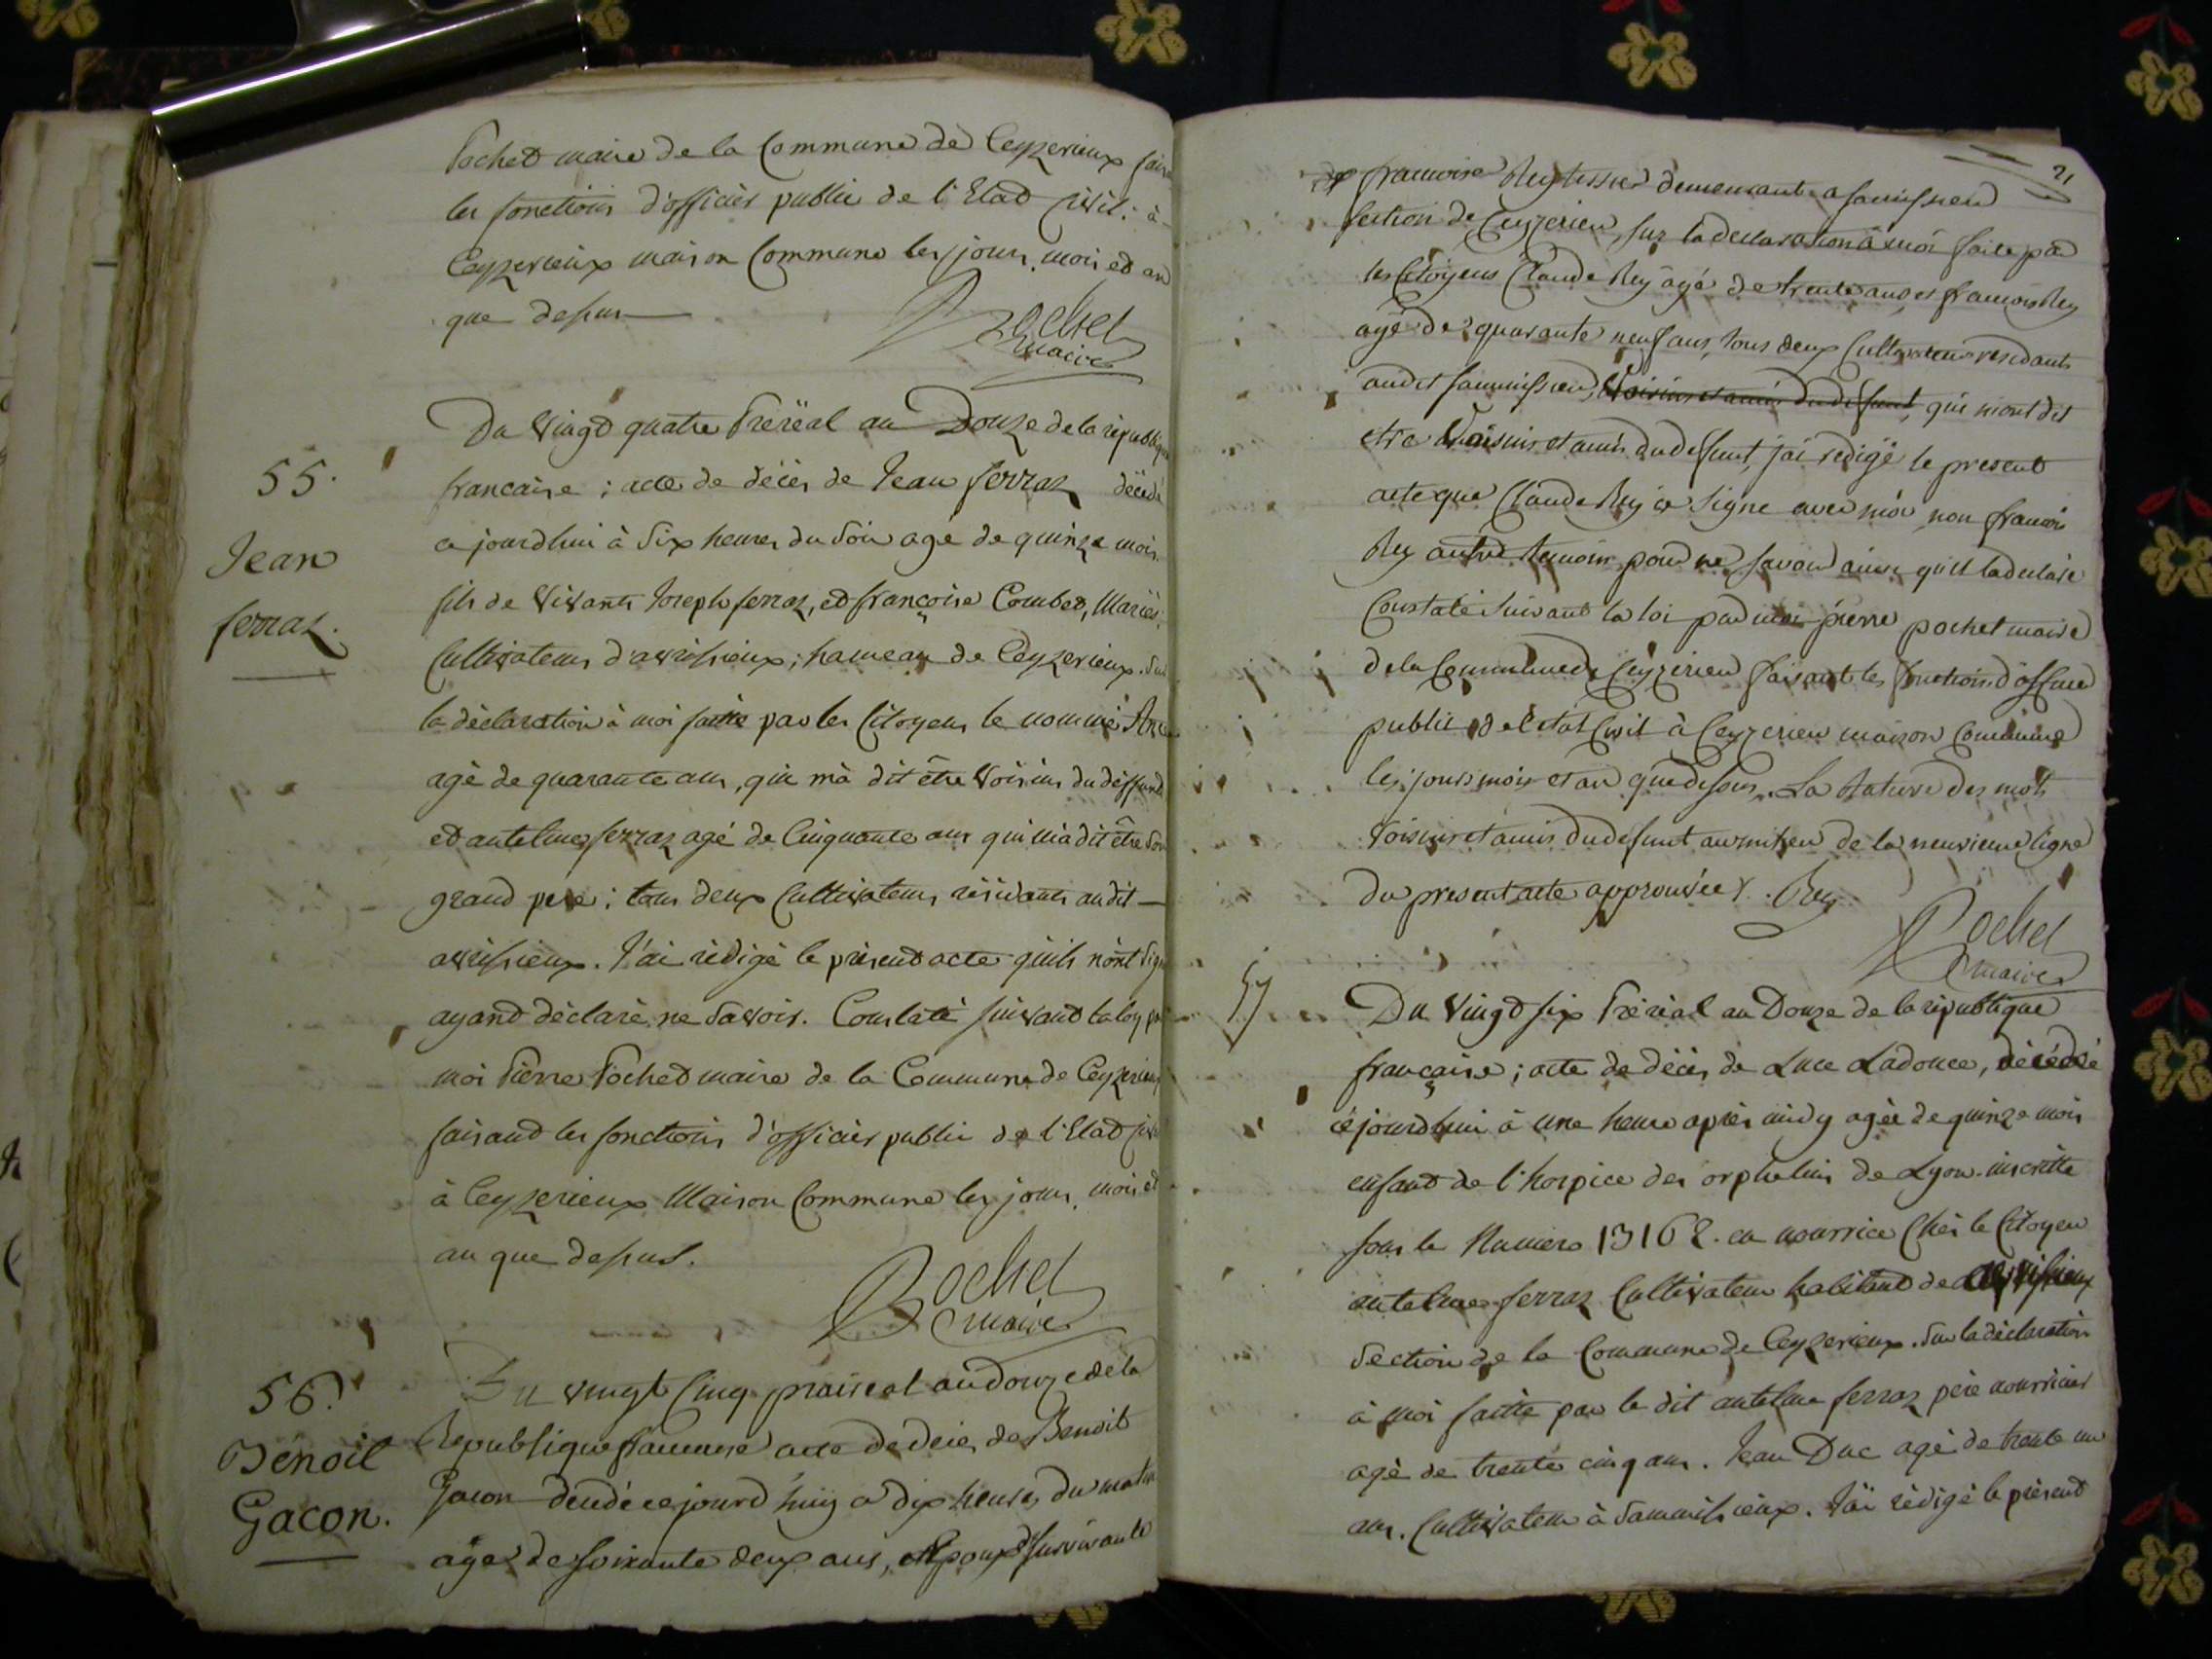 Pochet maire de la Commune de Ceyzerieux
les fonctions d'officier public de l'Etat civil. à
Ceyzerieux maison Commune les jour, mois et an
que dessus
Pochet
maire
55.
Jean
ferraz.
Du Vingt quatre Preréal an Douze de la républiqu
francaise ; acte de décès de Jean ferraz décédé
ce jourdhui à six heures du soir agé de quinze mois
fils de vivants Joseph ferraz, et françoise Combet, Mariés,
Cultivateurs d'avrissieux ; hameau de Ceyzerieux. Sur
la déclaration à moi faitte par les Citoyens le nommé
agé de quarante ans, qui m'a dit être voisin du déffunt
et antelme ferraz agé de Cinquante ans qui m'a dit être son
grand pere ; tous deux Cultivateurs résidants au dit
avrissieux. J'ai rédigé le présent acte qu'ils n'ont sign
ayant déclaré ne savoir. Constaté suivant la loy par
moi Pierre Pochet maire de la Commune de Ceyzerieux
faisant les fonctions d'officier public de l'Etat civil
à Ceyzerieux Maison Commune les jour, mois et
an que dessus.
Pochet
maire
56.
Bénoit
Gacon.
Du vingt Cinq prairial an douze de la
Republique francaise acte de décès de Benoit
Gacon décédé ce jourd'huy a dix heures du matin
agé de soixante deux ans, Epoux survivante
21
de francoise Rey demeurant a
section de Ceyzerieu, sur la declaration a moi faite par
les Citoyens Claude Rey agé de trente ans et francois Rey
agé de quarante neuf ans, tous deux Cultivateurs residants
audit voisins et amis du defunt, qui mont dit
etre Voisins et amis du defunt, jai redigé le present
acte que Claude Rey a signe avec moi non francois
Rey autre temoin pour ne savoir ainsi qu'il la declaré
Constaté suivant la loi par moi pierre pochet maire
de la Commune de Ceyzerieu faisant les fonctions d'officier
public de l'etat Civil à Ceyzerieu maison Commune
les jours mois et an que dessus. La rature des mots
voisins et amis du defunt au milieu de la neuvieme ligne
du present acte approuvée. Rey
Pochet
maire
57
Du Vingt six Preréal an Douze de la république
française ; acte de décès de Luce Ladouce, décédé
cejourdhui à une heure après midy agée de quinze mois
enfant de l'hospice des orphelins de Lyon. inscritte
sous le Numero 13168. en nourrice Chés le Citoyen
antelme ferraz Cultivateur habitant de avrissieux
Section de la Commune de Ceyzerieux. Sur la déclaration
à moi faitte par le dit antelme ferraz père nourricier
agé de trente cinq ans. Jean Duc agé de trente un
ans. Cultivateur à Sammissieux. J'ai rédigé le présent